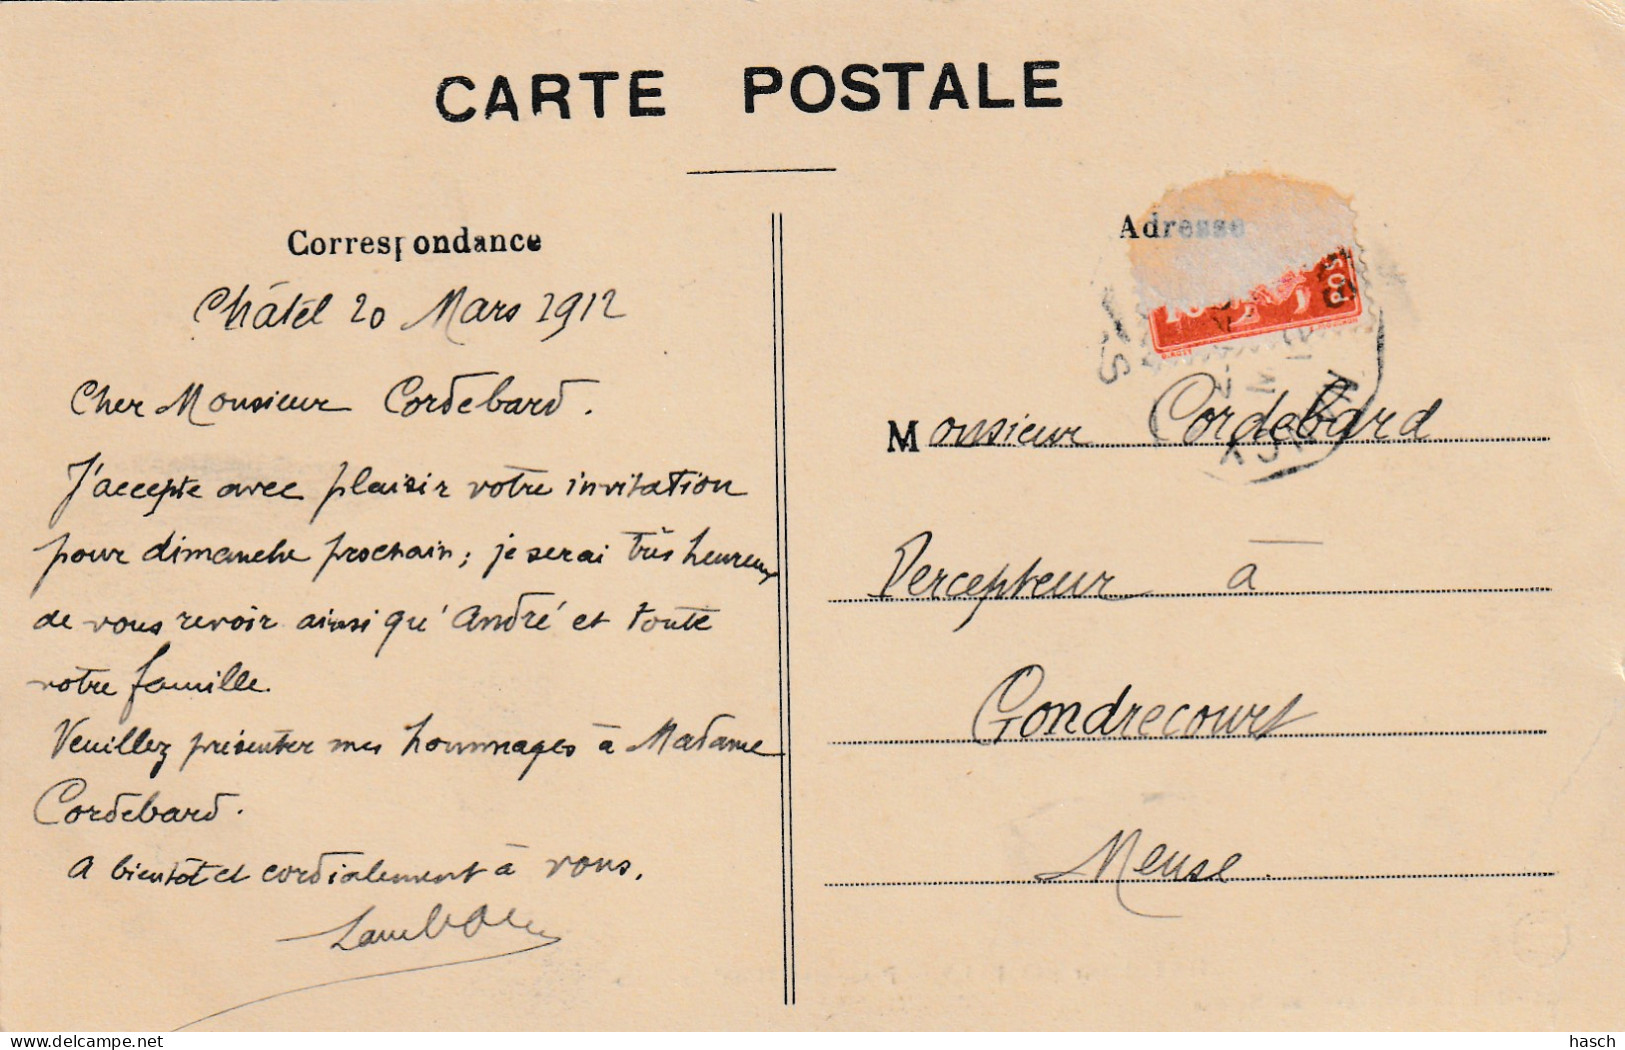 CARTE POSTALE
Correspondance
Châtel 20 Mars 1912
Cher Monsieur Cordebard.
J'accepte avec plaisir votre invitation
pour dimanche prochain; je serai très heureux
de vous revoir ainsi qu'André et toute
votre famille.
Veuillez présenter mes hommages à Madame
Cordebard.
A bientôt et cordialement à vous.
Adresse
POS
Monsieur Cordebard
Percepteur à
Gondrecourt
Meuse.
delcampe.net
hasch